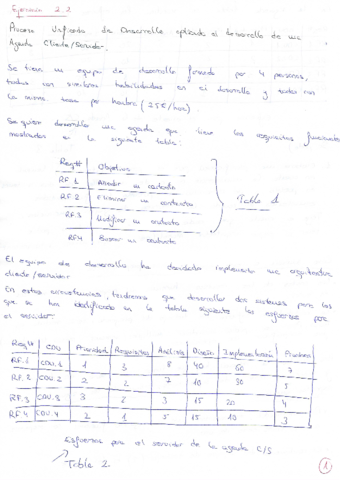 Ejercicio 2.2.
Proceso Unificado de Desarrollo aplicado al desarrollo de una
Agenda Cliente/Servidor.
Se tiene un equipo de desarrollo formado por 4 personas,
todas con similares habilidades en el desarrollo y todas con
la misma tasa por hombre (25€/hora).
Se quiere desarrollar una agenda que tiene los requisitos funcionales
mostrados en la siguiente tabla:
Req# Objetivo
RF.1 Añadir un contacto
RF.2 Eliminar un contacto
RF.3 Modificar un contacto
RF4 Buscar un contacto
Tabla 1
El equipo de desarrollo ha decidido implementar una arquitectura
cliente/servidor.
En estas circunstancias, tendremos que desarrollar dos sistemas para los
que se han en la tabla siguiente los esfuerzos para
el servidor.
Req# CDU Prioridad Requisitos Análisis Diseño Implementación Pruebas
RF.1 CDU.1 1 3 8 40 60 7
RF.2 CDU.2 2 2 7 10 30 5
RF.3 CDU.3 3 2 3 15 20 4
RF4 CDU.4 2 1 5 15 10 3
Esfuerzos para el servidor de la agenda C/S
Tabla 2
1